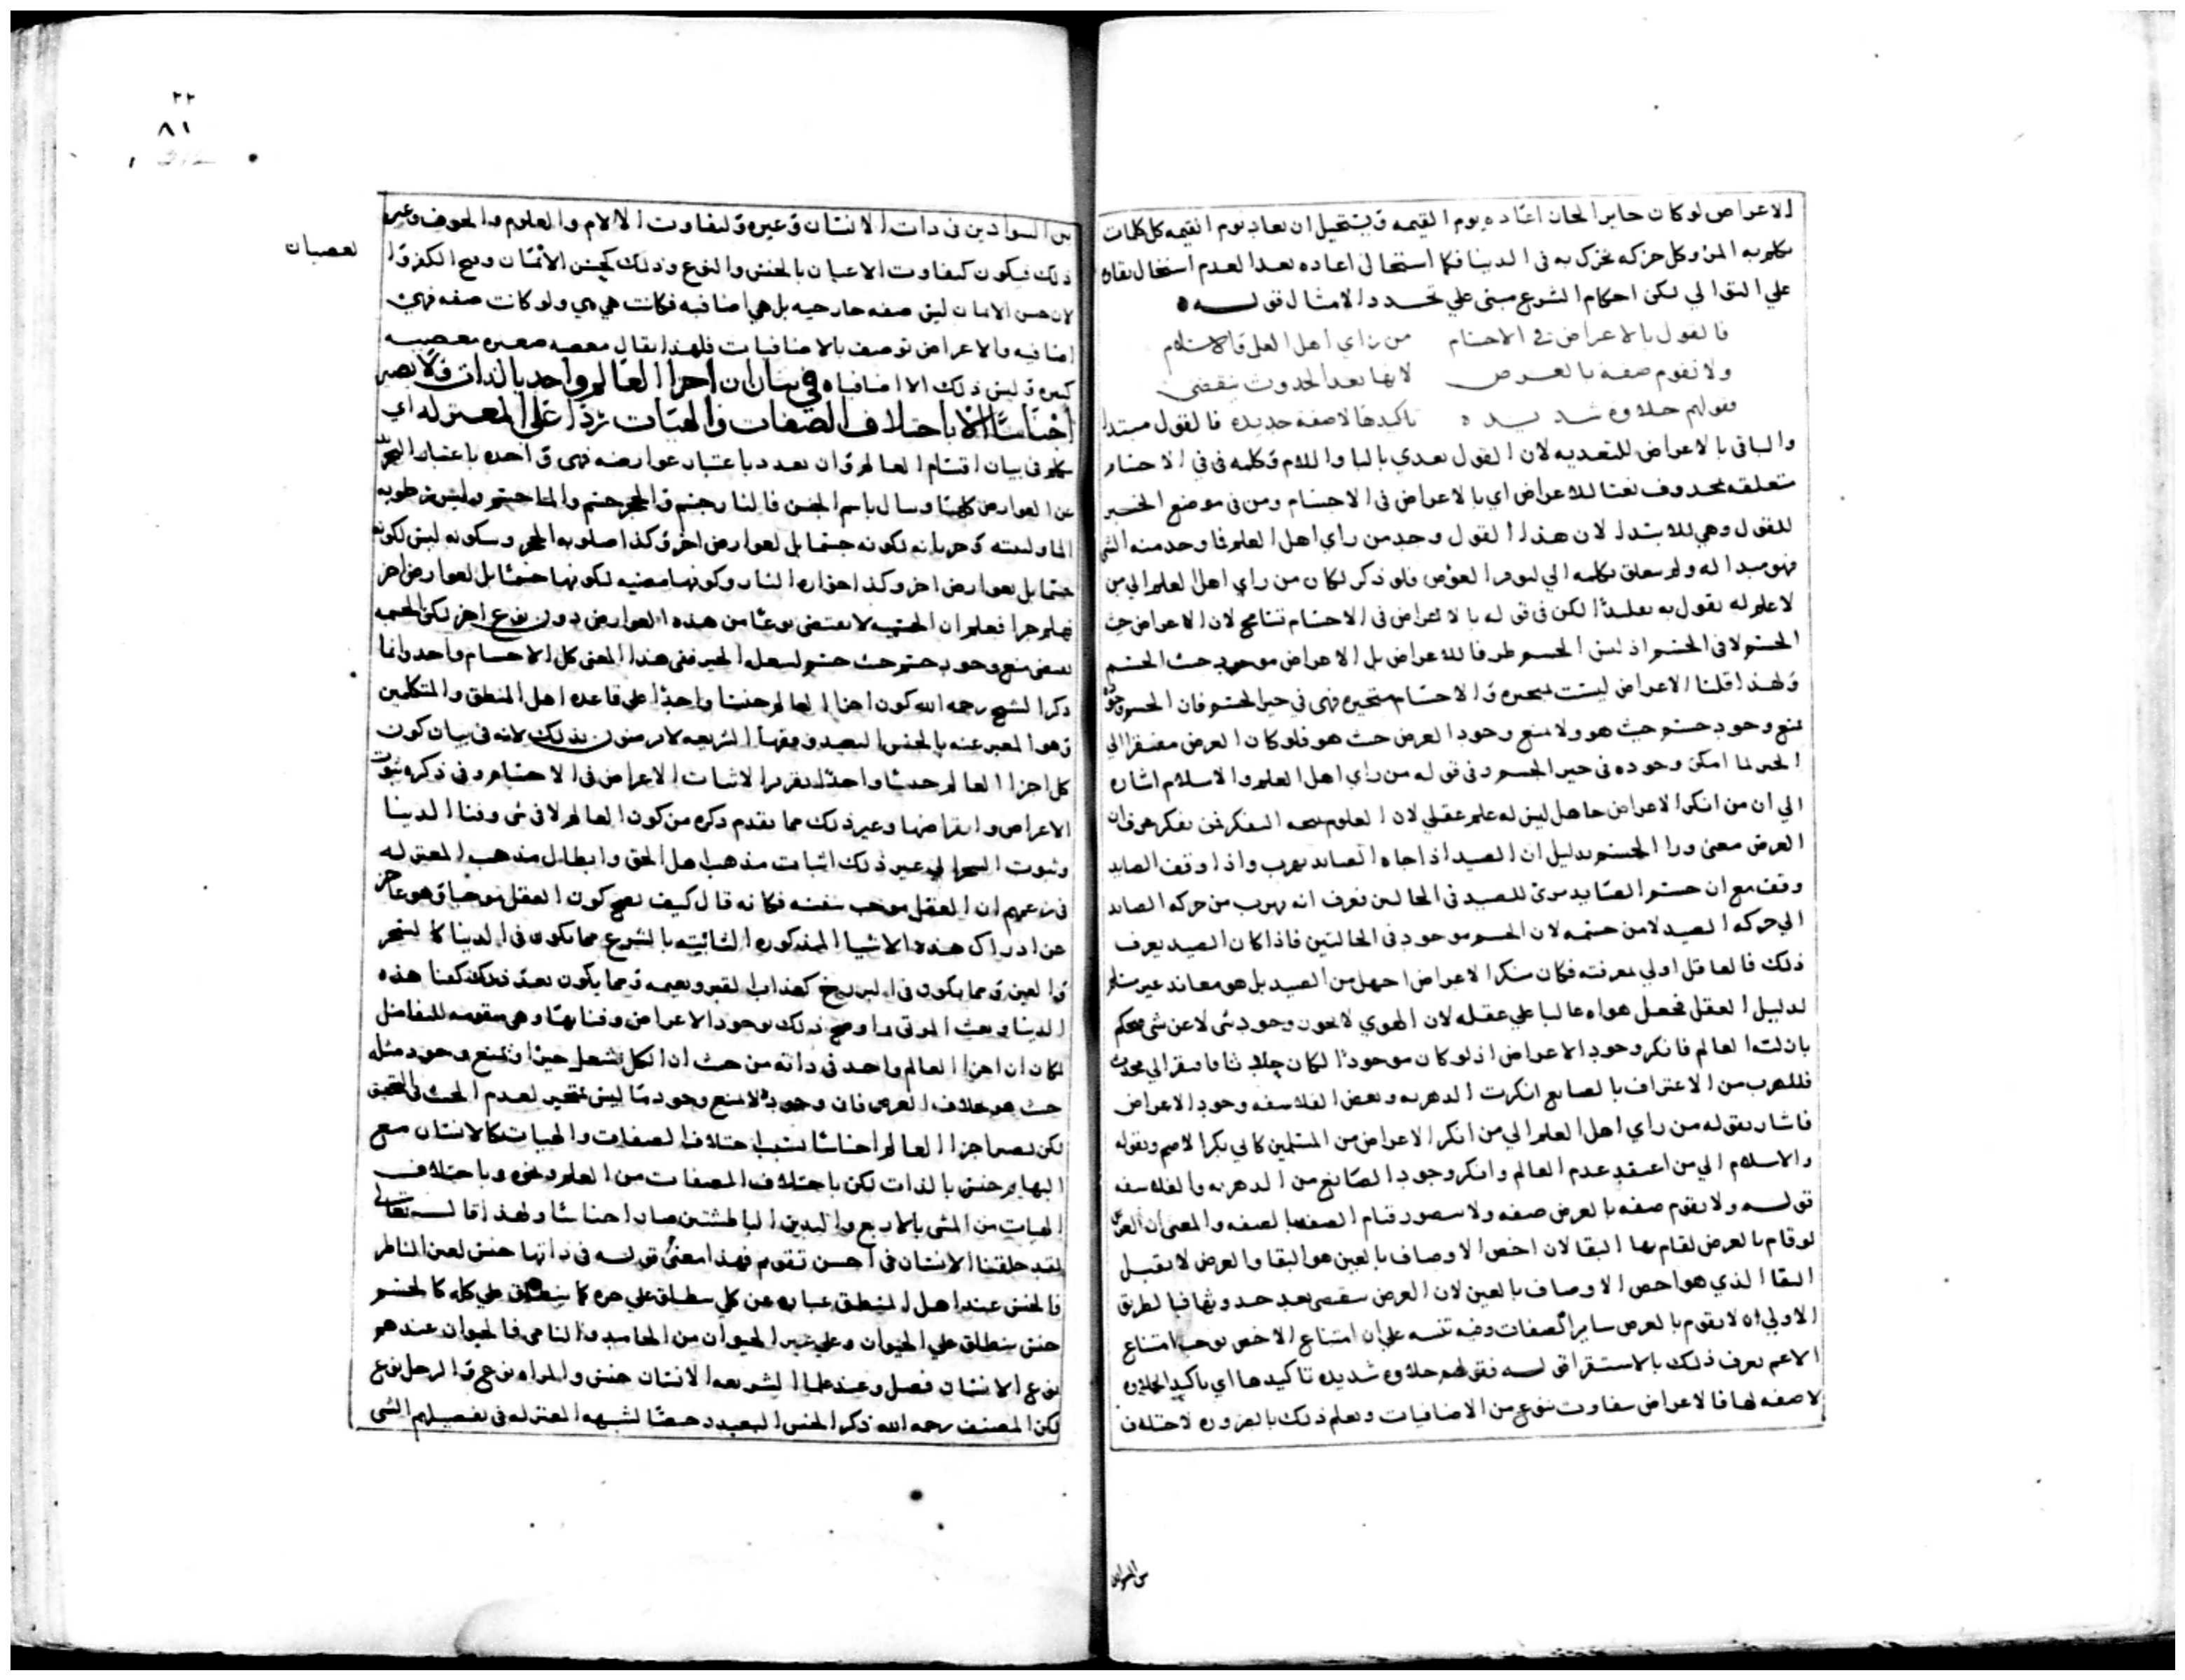 الاعراض لو كان جايز الجاز اعاده يوم القيمه ويستحيل ان يعاد يوم القيمه كل كلمات
تكلم به المرؤ وكل حركه تحرك به في الدنيا فكما استحال اعاده بعد العدم استحال بقاه
علي التوالي لكن احكام الشرع مبني علي تجدد الامثال قوله
فالقول بالاعراض في الاجسام من راي اهل العلم والاسلام
ولا تقوم صفة بالعرض لانها بعد الحدوث تنقضي
فقولهم حلاوه شديده تاكيدها لا صفه جديده فالقول مبتدا
والباقي بالاعراض للتعديه لان القول يعدي بالبا واللام وكلمه في في الاجسام
متعلقه بمحذوف نعتا للاعراض اي بالاعراض في الاجسام ومن في موضع الخبر
للقول وهي للابتدا لان هذا القول وجد من راي اهل العلم فما وجد منه الشي
فهو مبدا له ولم يتعلق بكلمه الي فلو ذكر لكان من راي اهل العلم الي من
لا علم له يقول به تقليدا لكن في قوله بالاعراض في الاجسام تسامح لان الاعراض حيث
الجسم لا في الجسم اذ ليس الجسم ظرفا للاعراض بل الاعراض موجود حيث الجسم
ولهذا قلنا الاعراض ليست بمتحيزه والاجسام متحيزه فهي في حيز الجسم فان الجسم
يمنع وجود جسم حيث هو ولا يمنع وجود العرض حيث هو فلو كان العرض مفتقرا الي
الحيز لما امكن وجوده في حيز الجسم وفي قوله من راي اهل العلم والاسلام اشاره
الي ان من انكر الاعراض جاهل ليس له علم عقلي لان العلوم نتيجه التفكر فمن تفكر عرف ان
العرض معني ورا الجسم بدليل ان الصيد اذا جاه الصايد يهرب واذا وقف الصايد
وقف مع ان جسم الصايد مرئ للصيد في الحالين فعرف انه يهرب من حركه الصايد
الي حركه الصيد لا من جسمه لان الجسم موجود في الحالتين فاذا كان الصيد يعرف
ذلك فالعاقل اولي بمعرفته فكان منكر الاعراض اجهل من الصيد بل هو معاند غير
لدليل العقل فجعل هواه غالبا علي عقله لان الهوي لا يجوز وجود شي لا عن شي فحكم
فانكر وجود الاعراض اذ لو كان موجودا لكان
فللهرب من الاعتراف بالصانع انكرت الدهريه وبعض الفلاسفه وجود الاعراض
فاشار بقوله من راي اهل العلم الي من انكر الاعراض من المسلمين كابي بكر الاصم وبقوله
والاسلام الي من اعتقد قدم العالم وانكر وجود الصانع من الدهريه والفلاسفه
قوله ولا يقوم صفه بالعرض صفه ولا يتصور قيام الصفه بالصفه والمعني ان العرض
لو قام بالعرض لقام بها البقا لان اخص الاوصاف بالعين هو البقا والعرض لا يقبل
البقا الذي هو اخص الاوصاف بالعين لان العرض ينقضي بعد حدوثها فبالطريق
الاولي ان لا يقوم بالعرض ساير الصفات وفيه تنبيه علي ان امتناع الاخص يوجب امتناع
الاعم يعرف ذلك بالاستقرا قوله فقولهم حلاوه شديده تاكيدها اي تاكيد الحلاوه
لا صفه لها فالاعراض تتفاوت بنوع من الاضافيات ويعلم ذلك بالضروره لاختلاف
من السوادين
٢٢
٨١
بين السوادين في ذات الانسان وغيره ولتفاوت الالام والعلوم والخوف وغير
ذلك فيكون كتفاوت الاعيان بالجنس والنوع وذلك كحسن الايمان وقبح الكفر و
لعصيان
لان حسن الايمان ليس صفه خارجيه بل هي اضافيه فكانت هي هي ولو كانت صفه فهي
اضافيه والاعراض توصف بالاضافيات فلهذا يقال معصيه صغيره ومعصيه
كبيره وليس ذلك الا اضافيا في بيان ان اجزا العالم واحد بالذات ولا يصير
اجناسا الا باختلاف الصفات والهيات ردا علي المعتزله اي
تكلم في بيان اقسام العالم وان تعدد باعتبار عوارضه فهي واحده باعتبار
عن العوارض كلها ويسال باسم الجنس فالنار جسم والحجر جسم والما جسم وليس رطوبه
الما ولينته وجريانه لكونه جسما بل لعوارض اخر وكذا صلوبه الحجر وسكونه ليس لكونه
جسما بل بعوارض اخر وكذا احراره النار وكونها مضيه لكونها جسما بل لعوارض اخر
فهلم جرا فعلم ان الجسميه لا يقتضي نوعا من هذه العوارض دون نوع اخر لكن الجسميه
يقتضي منع وجود جسم حيث جسم لشغله الحيز ففي هذا المعني كل الاجسام واحد وانما
ذكر الشيخ رحمه الله كون اجزا العالم جنسا واحدا علي قاعده اهل المنطق والمتكلمين
وهو المعبر عنه بالجنس البعيد وفقها الشريعه لا يرضون بذلك لانه في بيان كون
كل اجزا العالم حدثا واحدا تقريرا لاثبات الاعراض في الاجسام وفي ذكره ثبوت
الاعراض وانقراضها وغير ذلك مما تقدم ذكره من كون العالم لا في شي وفنا الدنيا
وثبوت السحر الي غير ذلك اثبات مذهب اهل الحق وابطال مذهب المعتزله
في زعمهم ان العقل موجب بنفسه فكانه قال كيف يصح كون العقل موجبا وهو عاجز
عن ادراك هذه الاشيا المذكوره الثابته بالشرع مما يكون في الدنيا كالسحر
والعين ومما يكون في البرزخ كعذاب القبر ونعيمه ومما يكون بعد ذلك كفنا هذه
الدنيا وبعث الموتي وجود الاعراض وفنايها وهي مقومه للتفاضل
لكان ان اجزا العالم واحد في ذاته من حيث ان الكل يشغل حيزا ويمنع وجود مثله
حيث هو بخلاف العرض فان وجوده لا يمنع وجود ما ليس بمتحيز لعدم
لكن يصير اجزا العالم اجناسا بسبب اختلاف الصفات والهيات كالانسان مع
البهايم جنس بالذات لكن باختلاف الصفات من العلم وغيره وباختلاف
الهيات من المشي بالاربع واليدين الباطشتين صارا اجناسا ولهذا قال الله تعالي
لقد خلقنا الانسان في احسن تقويم فهذا معني قوله في ذاتها جنس لعين الناظر
فالجنس عند اهل المنطق عباره عن كلي ينطلق علي جزه كما ينطلق علي كله كالجسم
جنس ينطلق علي الحيوان وعلي غير الحيوان من الجامد والنامي فالحيوان عندهم
نوع الانسان فصل وعند علما الشريعه الانسان جنس والمراه نوع والرجل نوع
لكن المصنف رحمه الله ذكر الجنس البعيد دحضا لشبهه المعتزله في تفصيلهم الشي